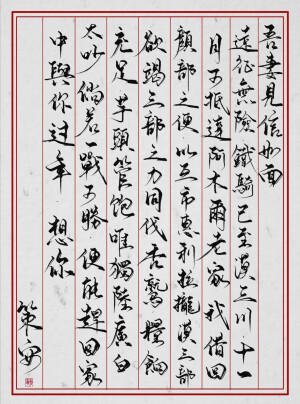 吾妻見信如面
遠征無險鐵騎已至漠三川十一
月可抵達阿木爾老家我借回
顏部之便以互市惠利拉攏漠三部
欲竭三部之力同伐舌鷲糧餉
充足芋頭管飽唯獨陸廣白
太吵倘若一戰可勝便能趕回家
中與你過年想你
策安